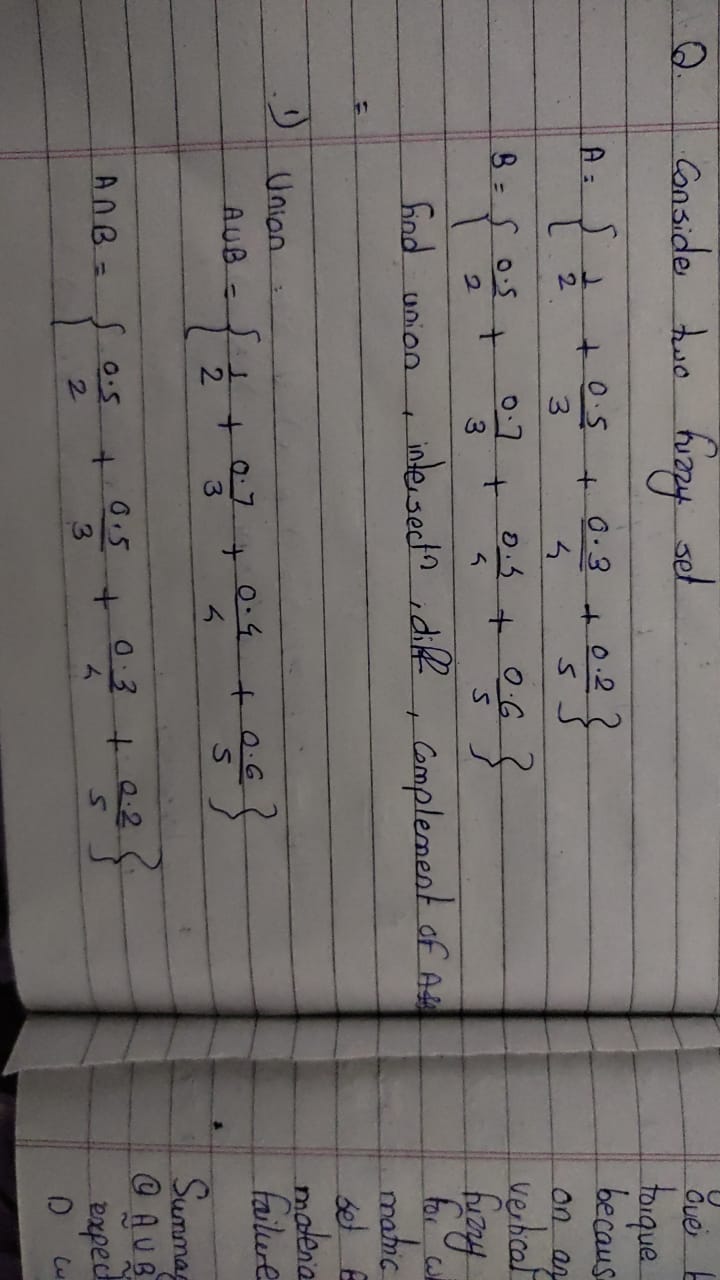 Q. Consider two fuzzy set
A = { 1/2 + 0.5/3 + 0.3/4 + 0.2/5 }
B = { 0.5/2 + 0.7/3 + 0.4/4 + 0.6/5 }
find union, intersectn, diff, complement of
=
1) Union :
A∪B = { 1/2 + 0.7/3 + 0.4/4 + 0.6/5 }
A∩B = { 0.5/2 + 0.5/3 + 0.3/4 + 0.2/5 }
over
torque
becaus
on an
vertical
fuzzy
for w
matric
set
materia
failure
Summa
@ A∪B
expect
D